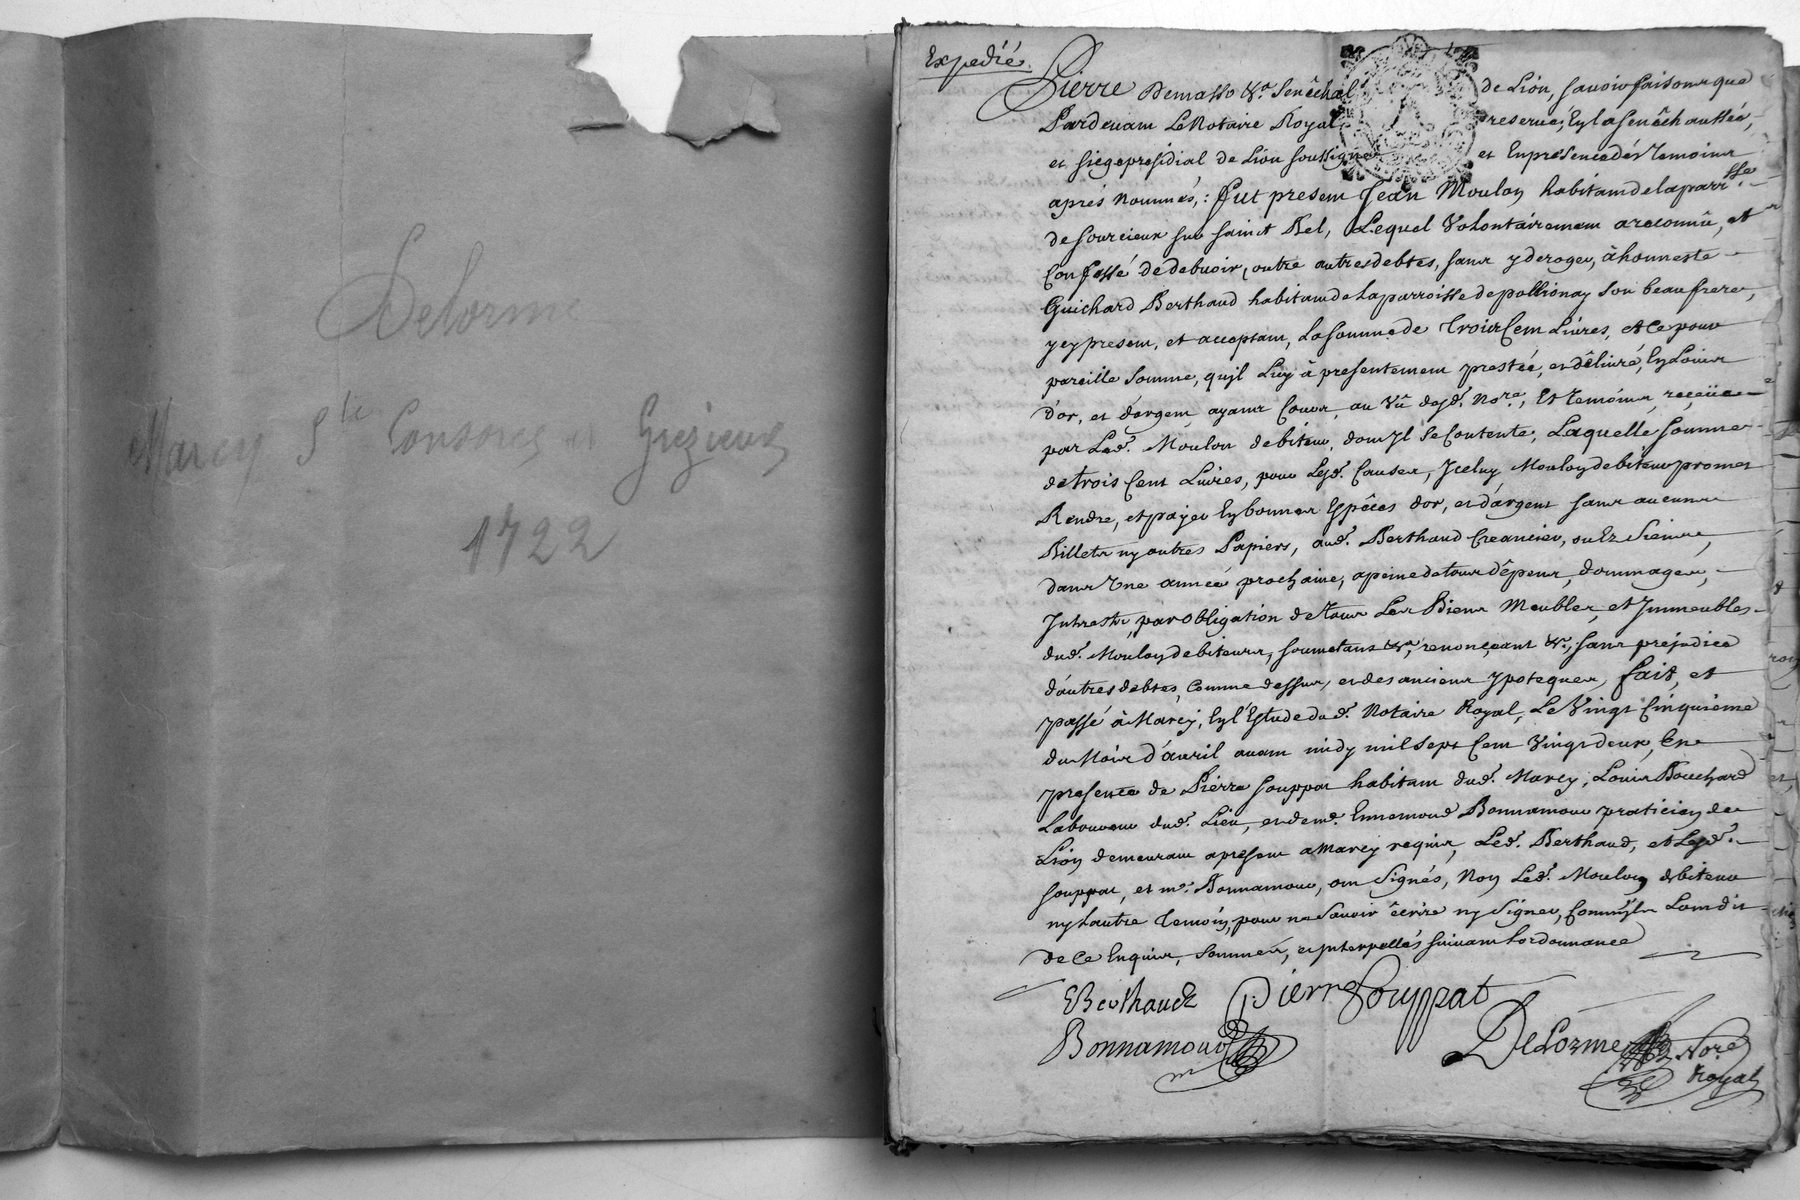 Delorme
Marcy Ste Consorce et Grezieux
1722
Expedié.
Pierre Demasso &a. Senêchal de Lion, savoir faisons que
Pardevant Le Notaire Royal, reservé, En la Senêchaussée,
et siege presidial de Lion soussigné et En presence dés temoins
aprés nommés,: Fut present Jean Moulon habitant de la parrsse.
de Sourcieux sur Sainct Bel, Lequel Volontairement a reconnû, et
Confessé de debvoir, outre autres debtes, sans y deroger, à honneste
Guichard Berthaud habitant de La parroisse de pollionay son beau frere,
ycy present, et acceptant, La somme de trois Cent Livres, et Ce pour
pareille somme, qu'jl Luy à presentement prestée, et dêlivré, En Louis
d'or, et d'argent ayant Cours, au Vû dud. Nore., Et temoins, reçeüe
par Led. Moulon debiteur, dont Jl Se Contente, Laquelle somme
de trois Cent Livres, pour Lesd. Causes, Jceluy Moulon debiteur promet
Rendre, et payer En bonnes Espêces d'or, et d'argent sans aucuns
Billets ny autres Papiers, aud. Berthaud Creancier, ou Ez Siens,
dans Une année prochaine, a peine de tous dêpens, dommages,
Jnterests, par obligation de tous Les Biens Meubles, et Jmmeubles
dud. Moulon debiteur, soumetant &a, renonçeant &a, sans prejudice
d'autres debtes, Comme dessus, et des anciens ypoteques, fait, et
passé à Marcy, En l'Estude dud. Notaire Royal, Le Vingt Cinquiême
du Mois d'avril avant midy mil Sept Cent Vingt deux, En
presence de Pierre Souppat habitant dud. Marcy, Louis Bouchard
Laboureur dud. Lieu, et de me. Ennemond Bonnamour praticien de
Lion demeurant a present a Marcy requis, Led. Berthaud, et Led.
Souppat, et me. Bonnamour, ont Signés, Non Led. Moulon debiteur
ny L'autre Temoin, pour ne Savoir êcrire ny Signer, Comm'jls L'ont dit
de Ce Enquis, Sommés, et Jnterpellés suivant L'ordonnance
EBerthaud Pierre Souppat
Bonnamour DeLorme Nore
Royal